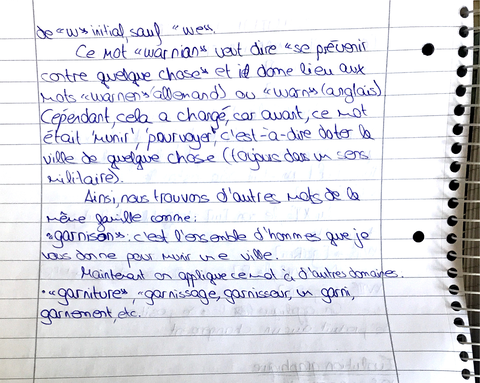 de «w» initial, sauf «we».
Ce mot «warnian» veut dire «se prévenir
contre quelque chose» et il donne lieu aux
mots «warnen» (allemand) ou «warn» (anglais).
Cependant, cela a changé, car avant, ce mot
était 'munir', 'pourvoyer', c'est-à-dire doter la
ville de quelque chose (toujours dans un sens
militaire).
Ainsi, nous trouvons d'autres mots de la
même famille comme:
«garnison»: c'est l'ensemble d'hommes que je
vous donne pour munir une ville.
Maintenant on applique ce mot à d'autres domaines.
·«garniture», «garnissage, garnisseur, un garni,
garnement, etc.